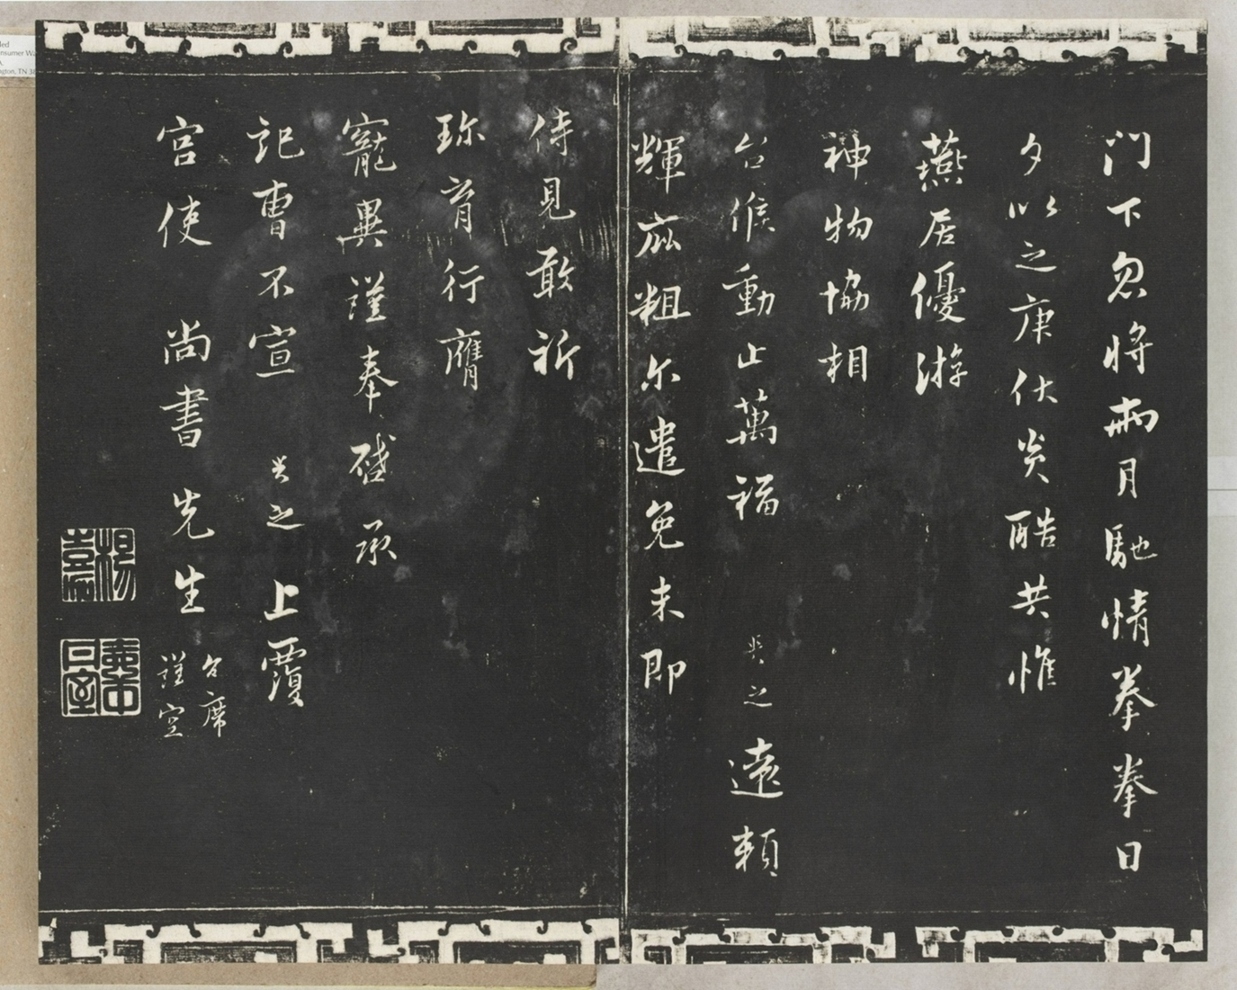 门下忽將兩月馳情拳拳日
夕以之庚伏炎酷共惟
燕居優游
神物協相
台候動止萬福 炎之遠賴
輝庇粗尔遣免未即
侍見敢祈
珎育行膺
寵異謹奉啓承
記曹不宣 炎之 上覆
宫使 尚書 先生
台席
謹空